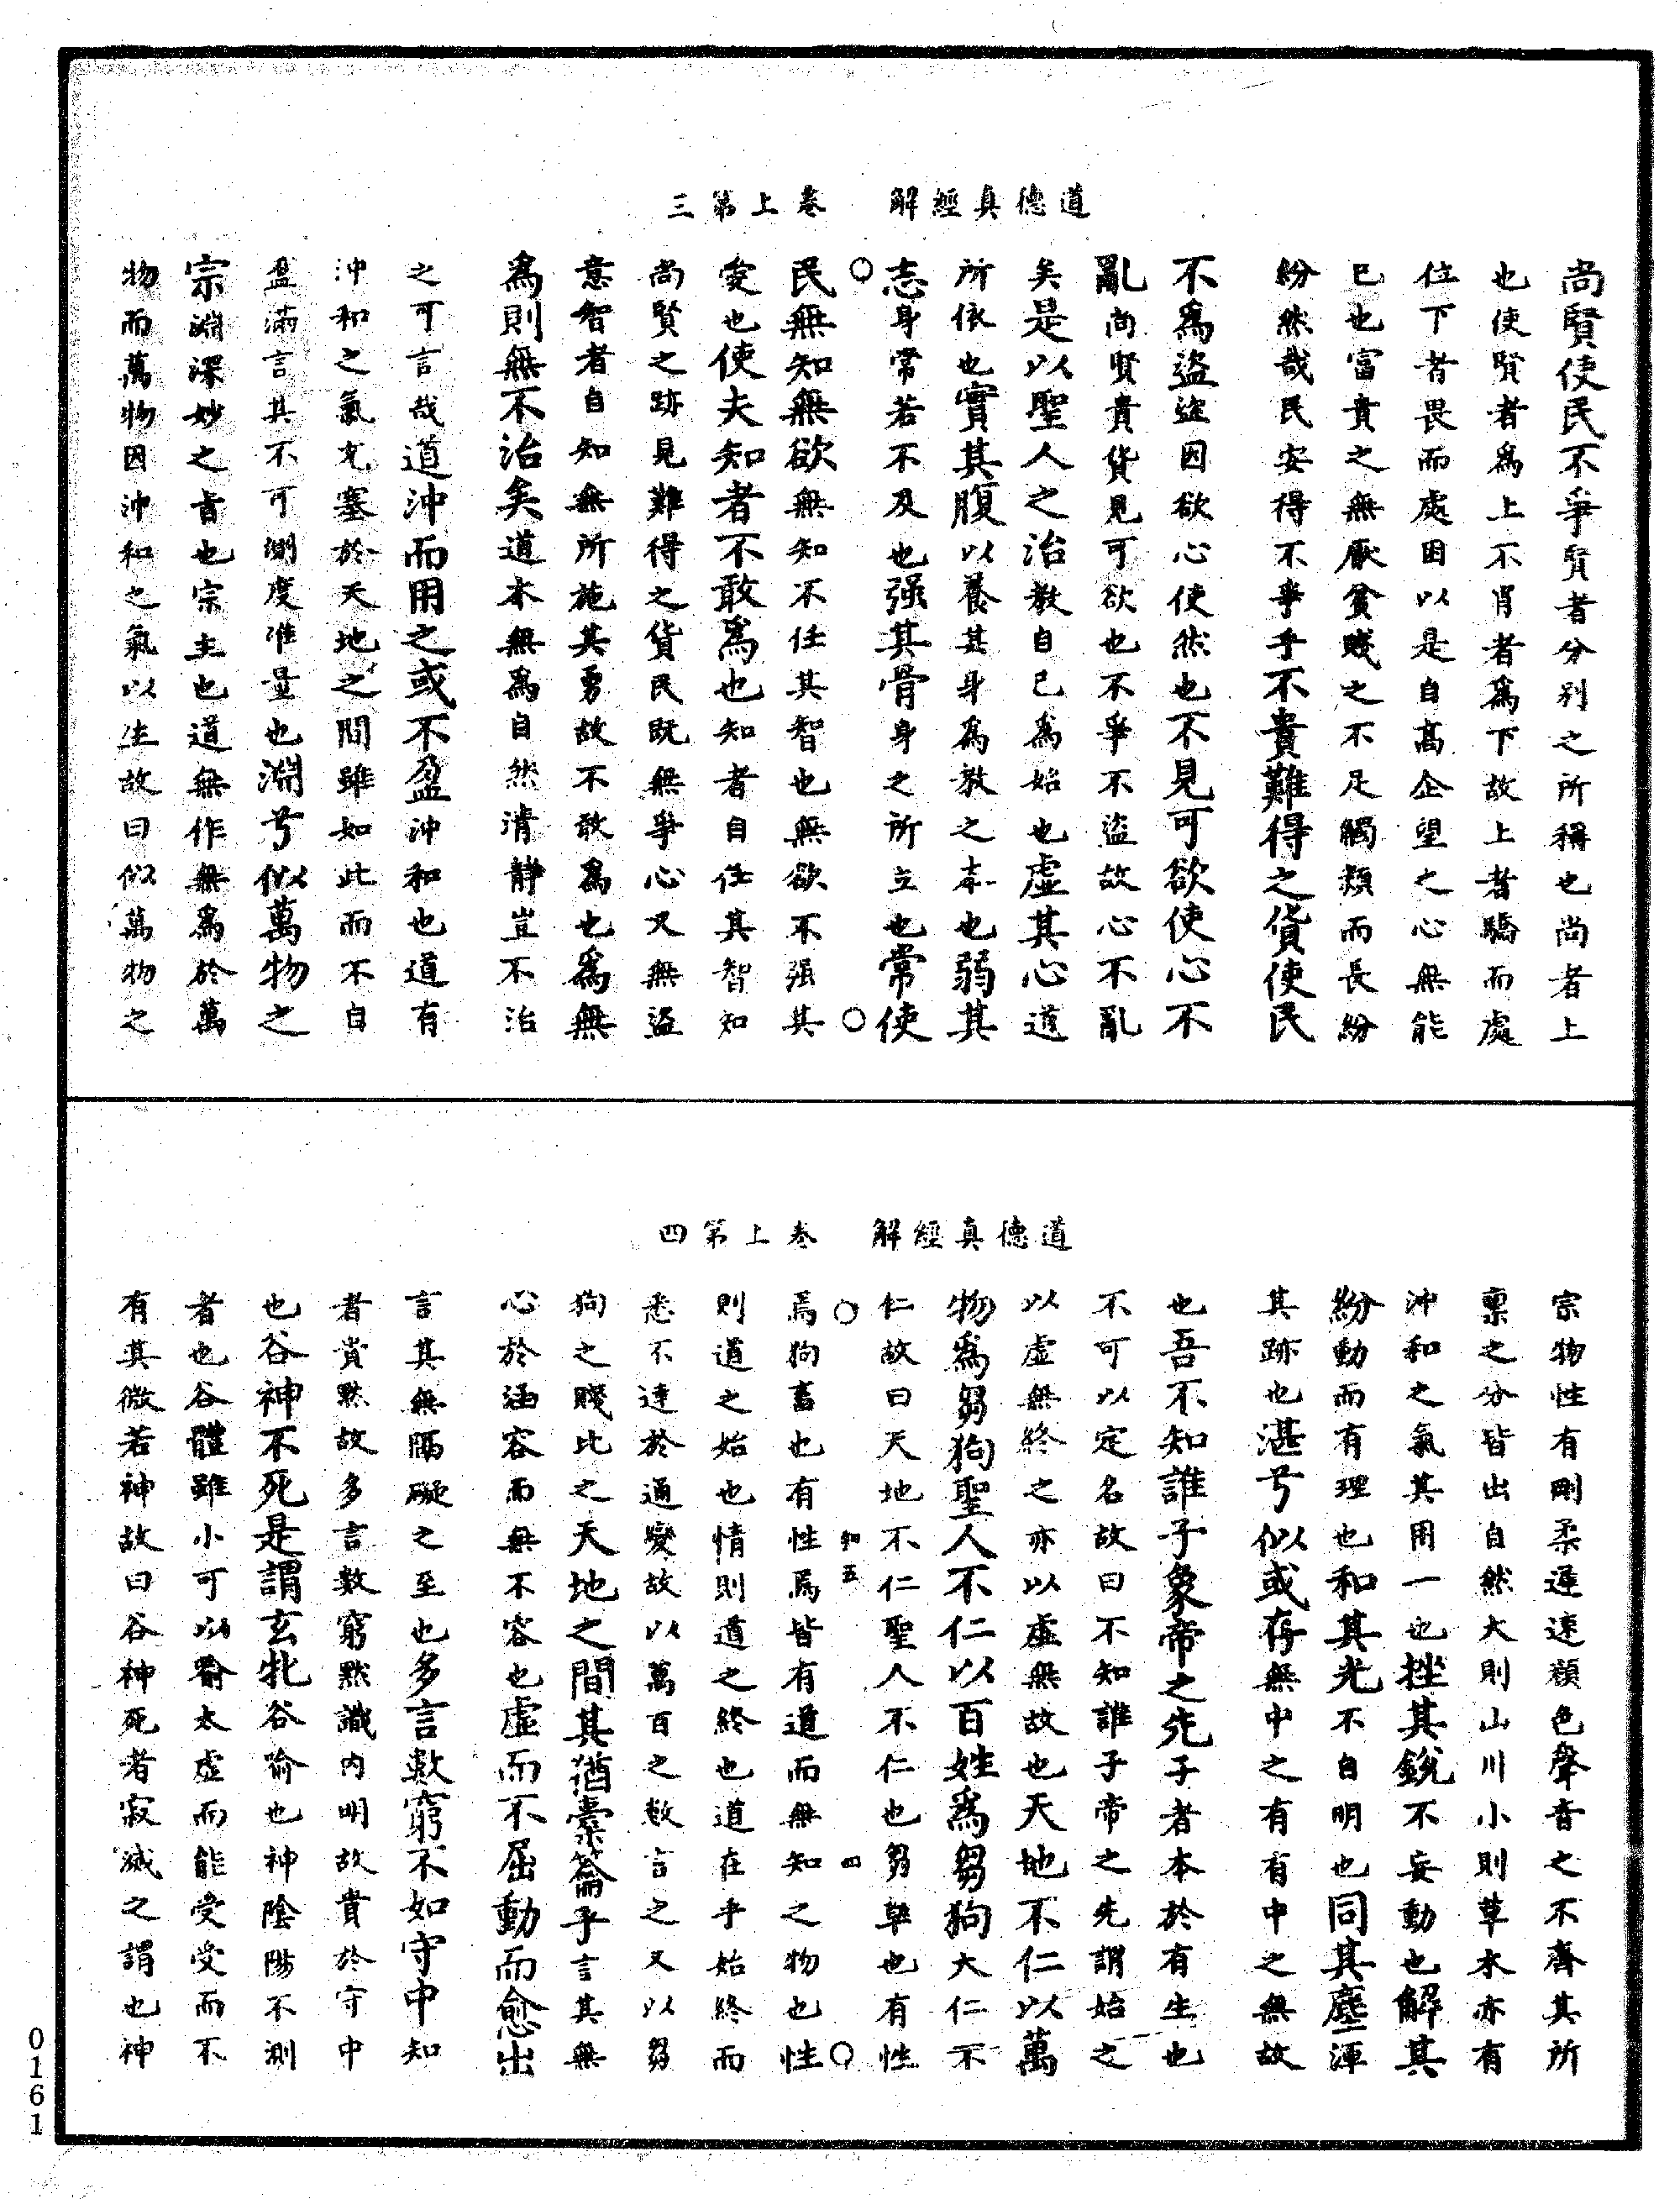 道德真經解　卷上第三
尚賢使民不爭賢者分别之所稱也尚者上
也使賢者爲上不肖者爲下故上者驕而處
位下者畏而處困以是自髙企望之心無能
已也富貴之無厭貧賤之不足觸類而長紛
紛然哉民安得不爭乎不貴難得之貨使民
不爲盜盜因欲心使然也不見可欲使心不
亂尚賢貴貨見可欲也不爭不盜故心不亂
矣是以聖人之治教自已爲始也虛其心道
所依也實其腹以養其身爲教之本也弱其
志身常若不及也强其骨身之所立也常使
民無知無欲無知不任其智也無欲不强其
愛也使夫知者不敢爲也知者自任其智知
尚賢之跡見難得之貨民既無爭心又無盜
意智者自知無所施其勇故不敢爲也爲無
爲則無不治矣道本無爲自然清靜豈不治
之可言哉道沖而用之或不盈沖和也道有
沖和之氣充塞於天地之間雖如此而不自
盈滿言其不可測度准量也淵兮似萬物之
宗淵深妙之旨也宗主也道無作無爲於萬
物而萬物因沖和之氣以生故曰似萬物之
道德真經解　卷上第四
宗物性有剛柔遲速顏色聲音之不齊其所
稟之分皆出自然大則山川小則草木亦有
沖和之氣其用一也挫其銳不妄動也解其
紛動而有理也和其光不自明也同其塵渾
其跡也湛兮似或存無中之有有中之無故
也吾不知誰子象帝之先子者本於有生也
不可以定名故曰不知誰子帝之先謂始之
以虛無終之亦以虛無故也天地不仁以萬
物爲芻狗聖人不仁以百姓爲芻狗大仁不
仁故曰天地不仁聖人不仁也芻草也有性
焉狗畜也有性焉皆有道而無知之物也性
則道之始也情則道之終也道在乎始終而
悉不達於通變故以萬百之數言之又以芻
狗之賤比之天地之間其猶橐籥乎言其無
心於涵容而無不容也虛而不屈動而愈出
言其無隔礙之至也多言數窮不如守中知
者貴默故多言數窮默識内明故貴於守中
也谷神不死是謂玄牝谷喻也神陰陽不測
者也谷體雖小可以喻太虛而能受受而不
有其微若神故曰谷神死者寂滅之謂也神
四
0161